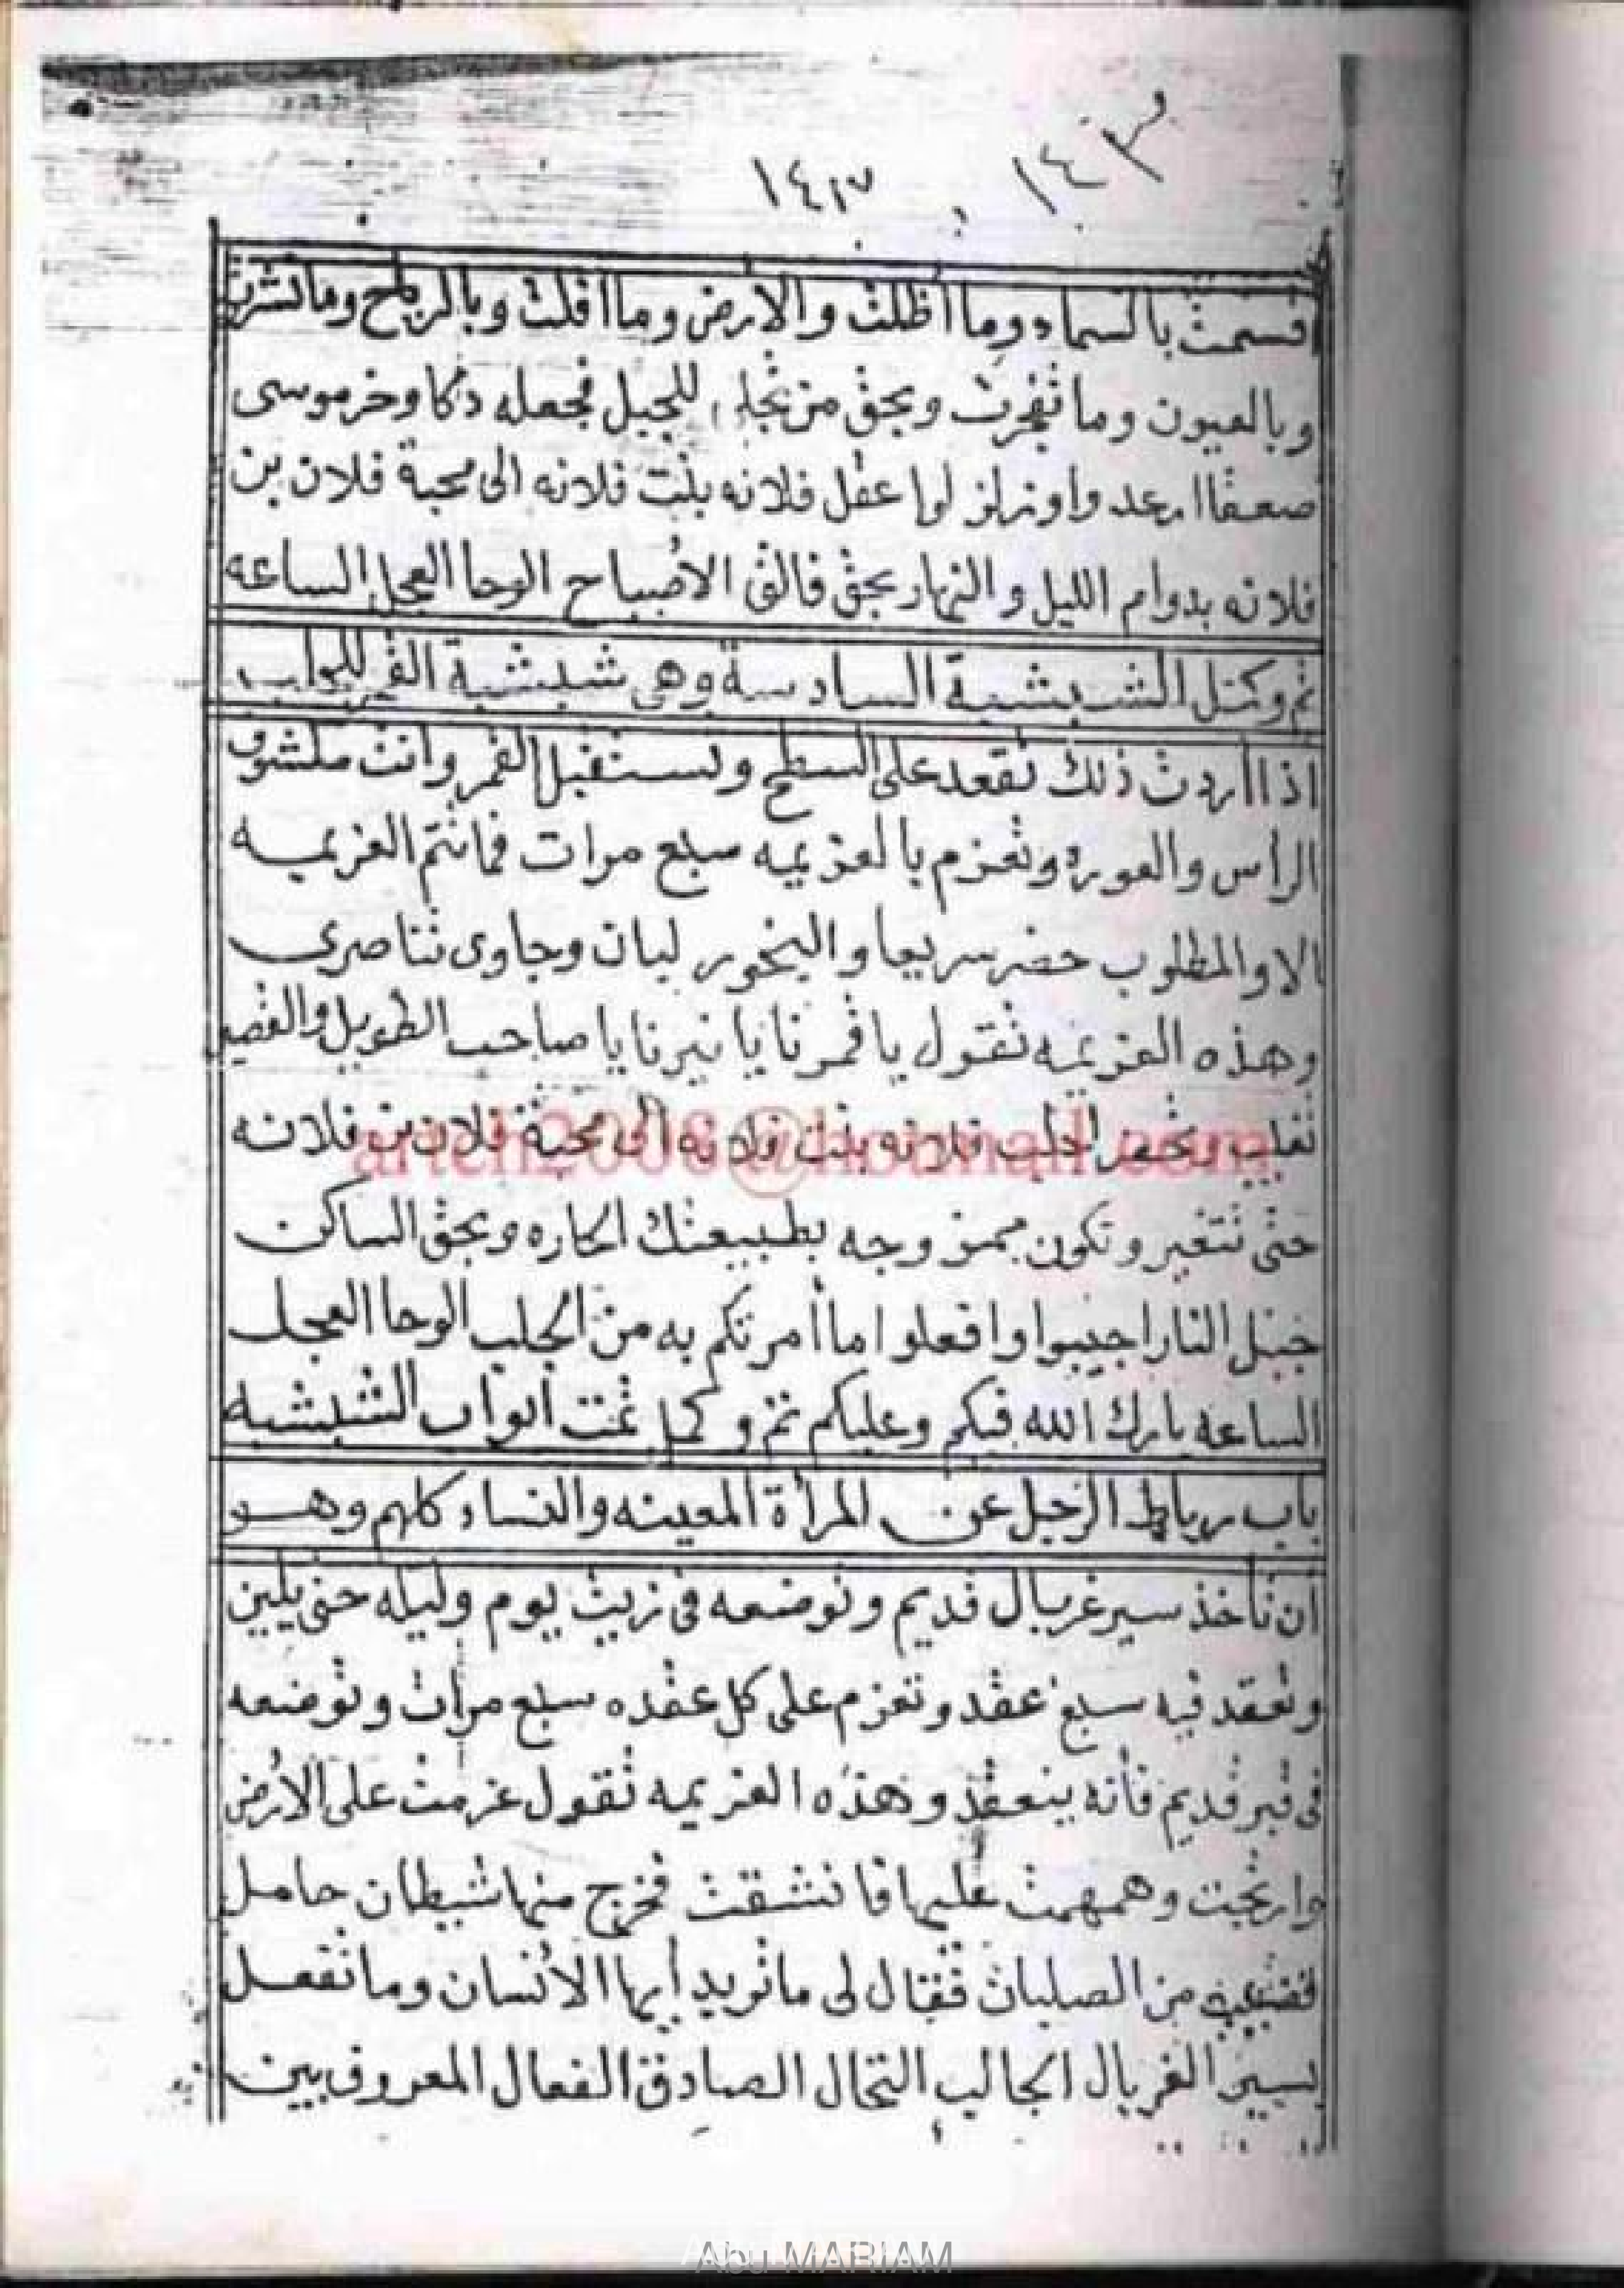 ١٤٠٣
١٤١٧
اقسمت بالسماء وما اظلت والارض وما اقلت وبالرياح وما نشرت
وبالعيون وما تفجرت وبحق من تجلى للجبل فجعله دكا وخر موسى
صعقا عقل فلانه بنت فلانه الى محبة فلان بن
فلانه بدوام الليل والنهار بحق فالق الاصباح الوحا العجل الساعه
تم وكمل الشبشبة السادسة وهى شبشبة القمر
اذا اردت ذلك تقعد على السطح وتستقبل القمر وانت مكشوف
الرأس والعوره وتعزم بالعزيمه سبع مرات فما تتم العزيمه
الا والمطلوب حضر سريعا والبخور لبان وجاوى تناصرى
وهذه العزيمه تقول يا قمرنا يا نيرنا يا صاحب الطويل والقصير
فلانه بنت فلانه الى محبة فلان بن فلانه
حتى تتغير وتكون ممزوجه بطبيعتك الحاره وبحق الساكن
جبل النار اجيبوا وافعلوا ما أمرتكم به من الجلب الوحا العجل
الساعه بارك الله فيكم وعليكم تم وكمل تمت ابواب الشبشبه
باب رباط الرجل عن المرأة المعينه والنساء كلهم وهو
ان تأخذ سير غربال قديم وتوضعه فى زيت يوم وليله حتى يلين
وتعقد فيه سبع عقد وتعزم على كل عقده سبع مرات وتوضعه
فى قبر قديم فأنه ينعقد وهذه العزيمه تقول عزمت على الارض
وارتجت وهمهمت عليها فانشقت فخرج منها شيطان حامل
من الصلبان فقال لى ما تريد أيها الانسان وما تفعل
بسير الغربال الجالب النحال الصادق الفعال المعروف بين
arteh2006@hotmail.com
Abu MARIAM